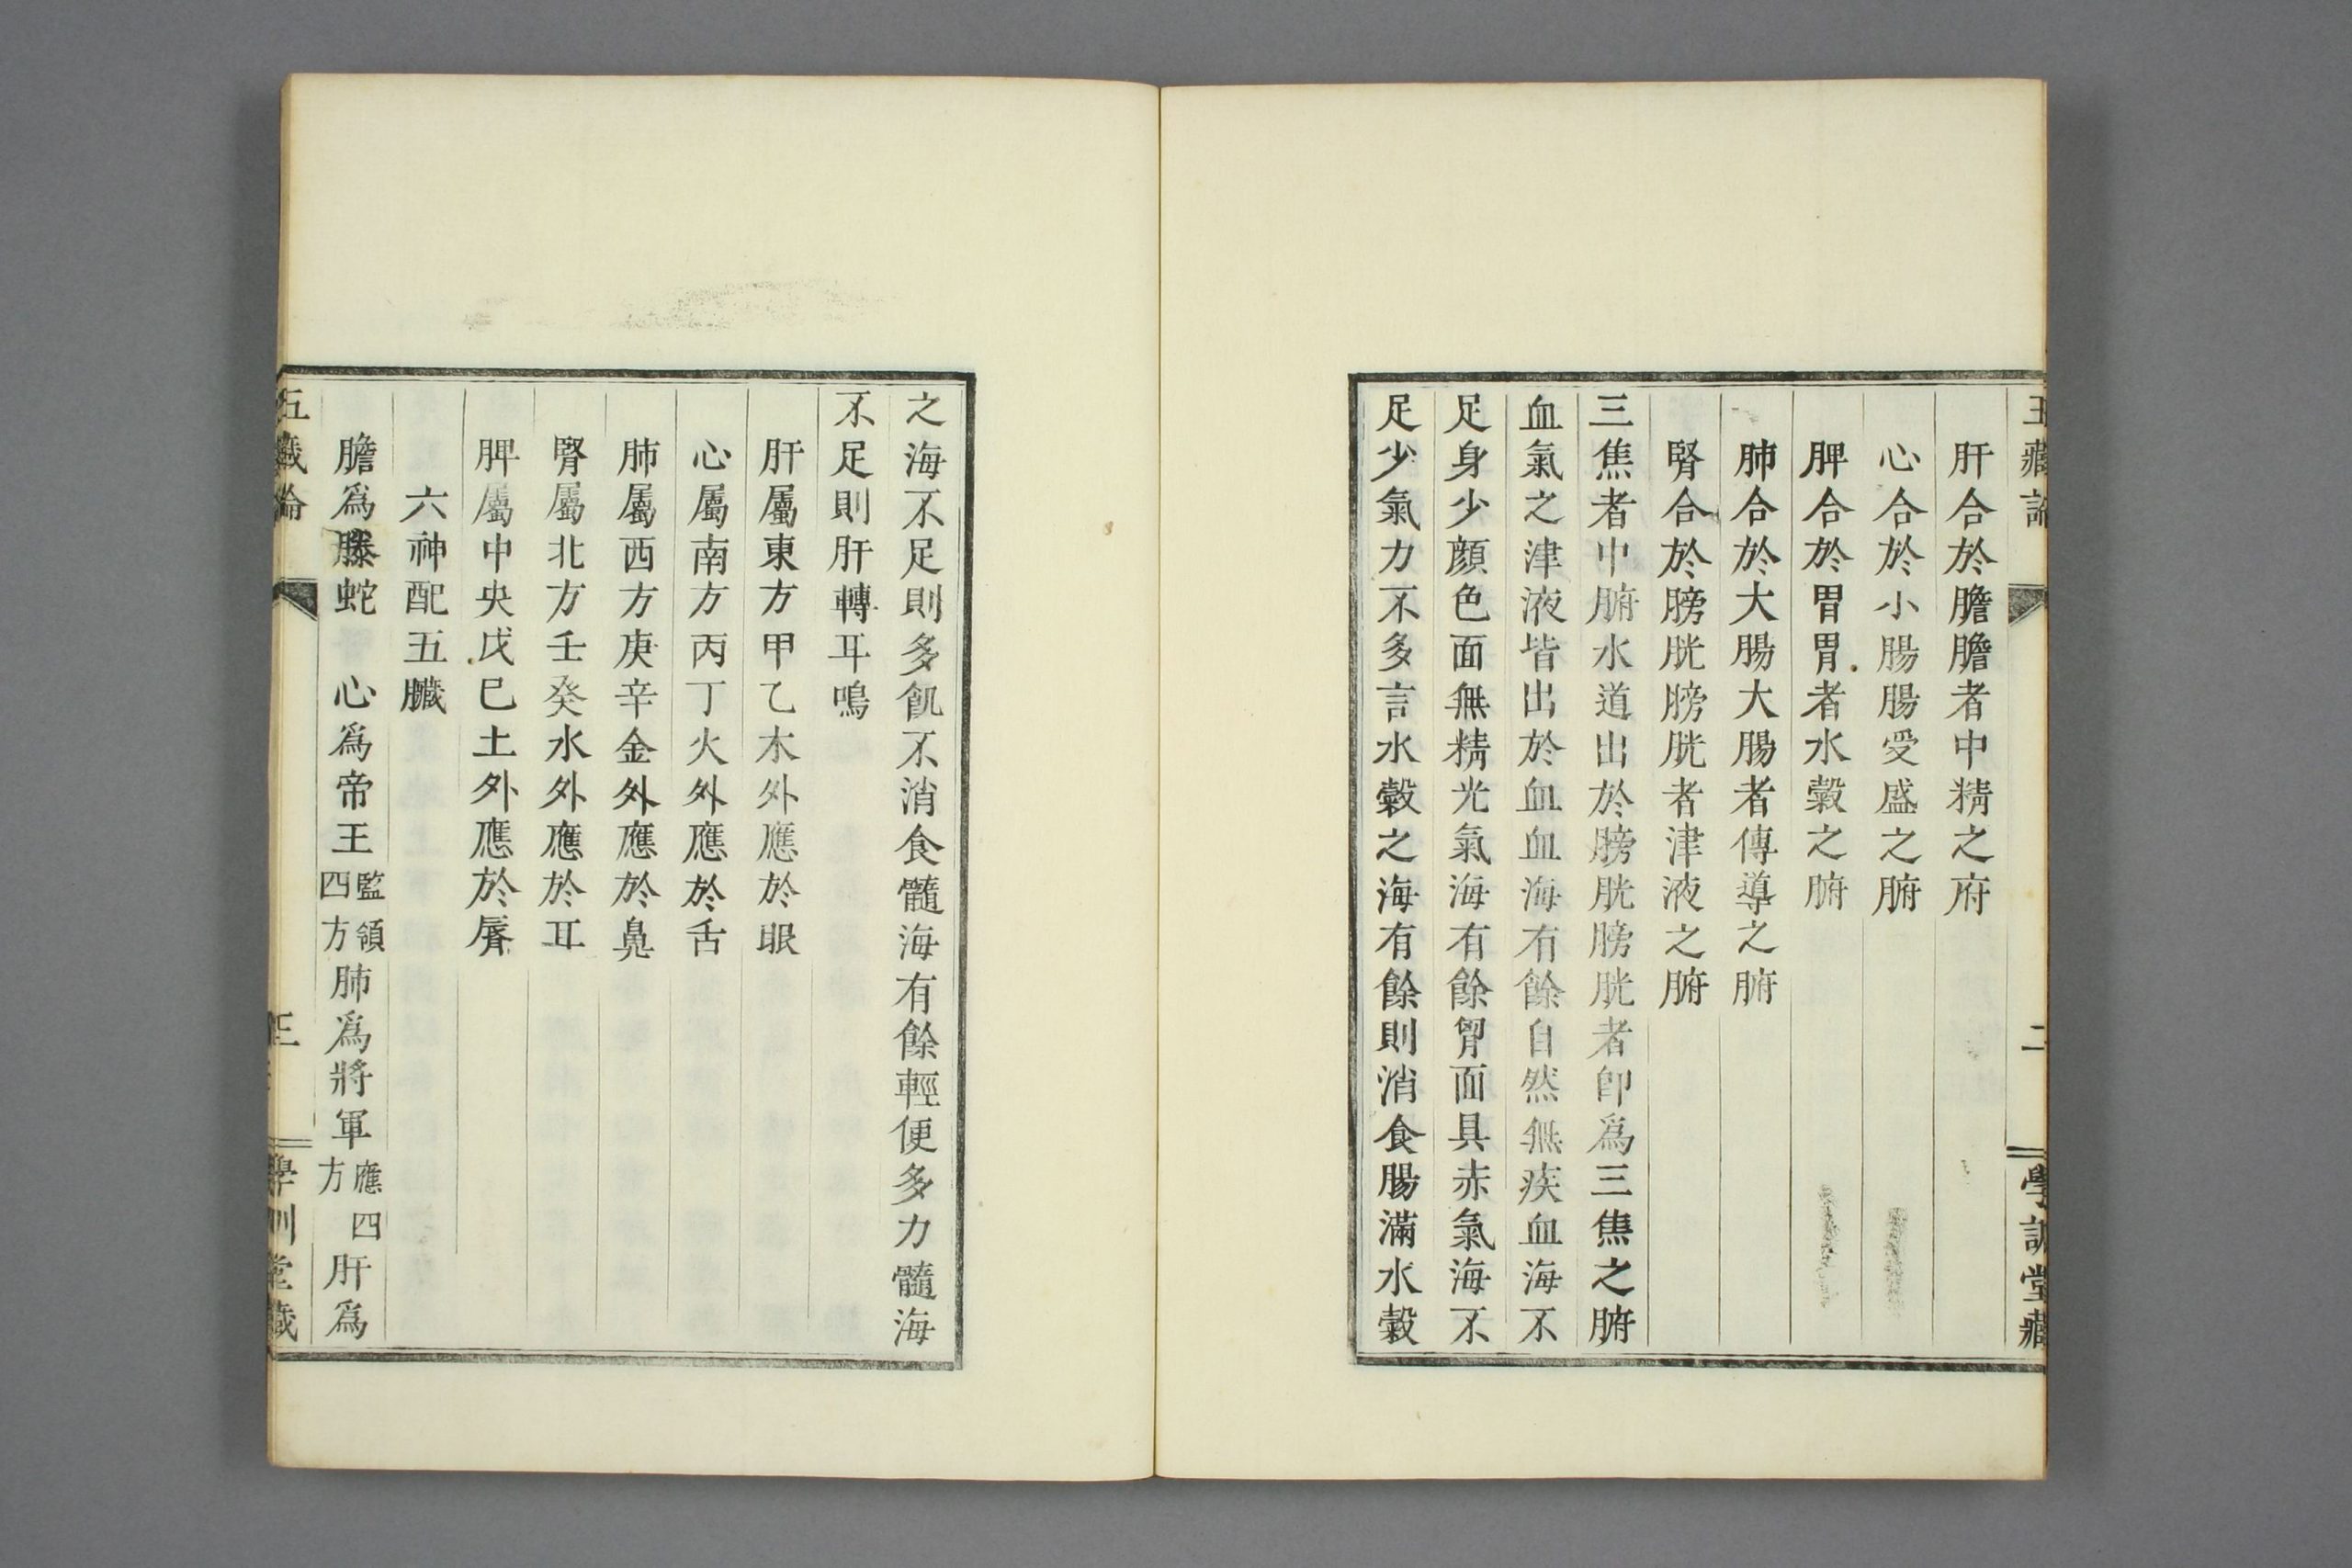 五藏論
二
學訓堂藏
肝合於膽膽者中精之府
心合於小腸腸受盛之腑
脾合於胃胃者水穀之腑
肺合於大腸大腸者傳導之腑
腎合於膀胱膀胱者津液之腑
三焦者中腑水道出於膀胱膀胱者卽爲三焦之腑
血氣之津液皆出於血血海有餘自然無疾血海不
足身少顏色面無精光氣海有餘胷面具赤氣海不
足少氣力不多言水穀之海有餘則消食腸滿水穀
之海不足則多飢不消食髓海有餘輕便多力髓海
不足則肝轉耳鳴
肝屬東方甲乙木外應於眼
心屬南方丙丁火外應於舌
肺屬西方庚辛金外應於鼻
腎屬北方壬癸水外應於耳
脾屬中央戊巳土外應於脣
六神配五臟
膽爲螣蛇 心爲帝王監領四方肺爲將軍應四方肝爲
五藏論
三
學訓堂藏